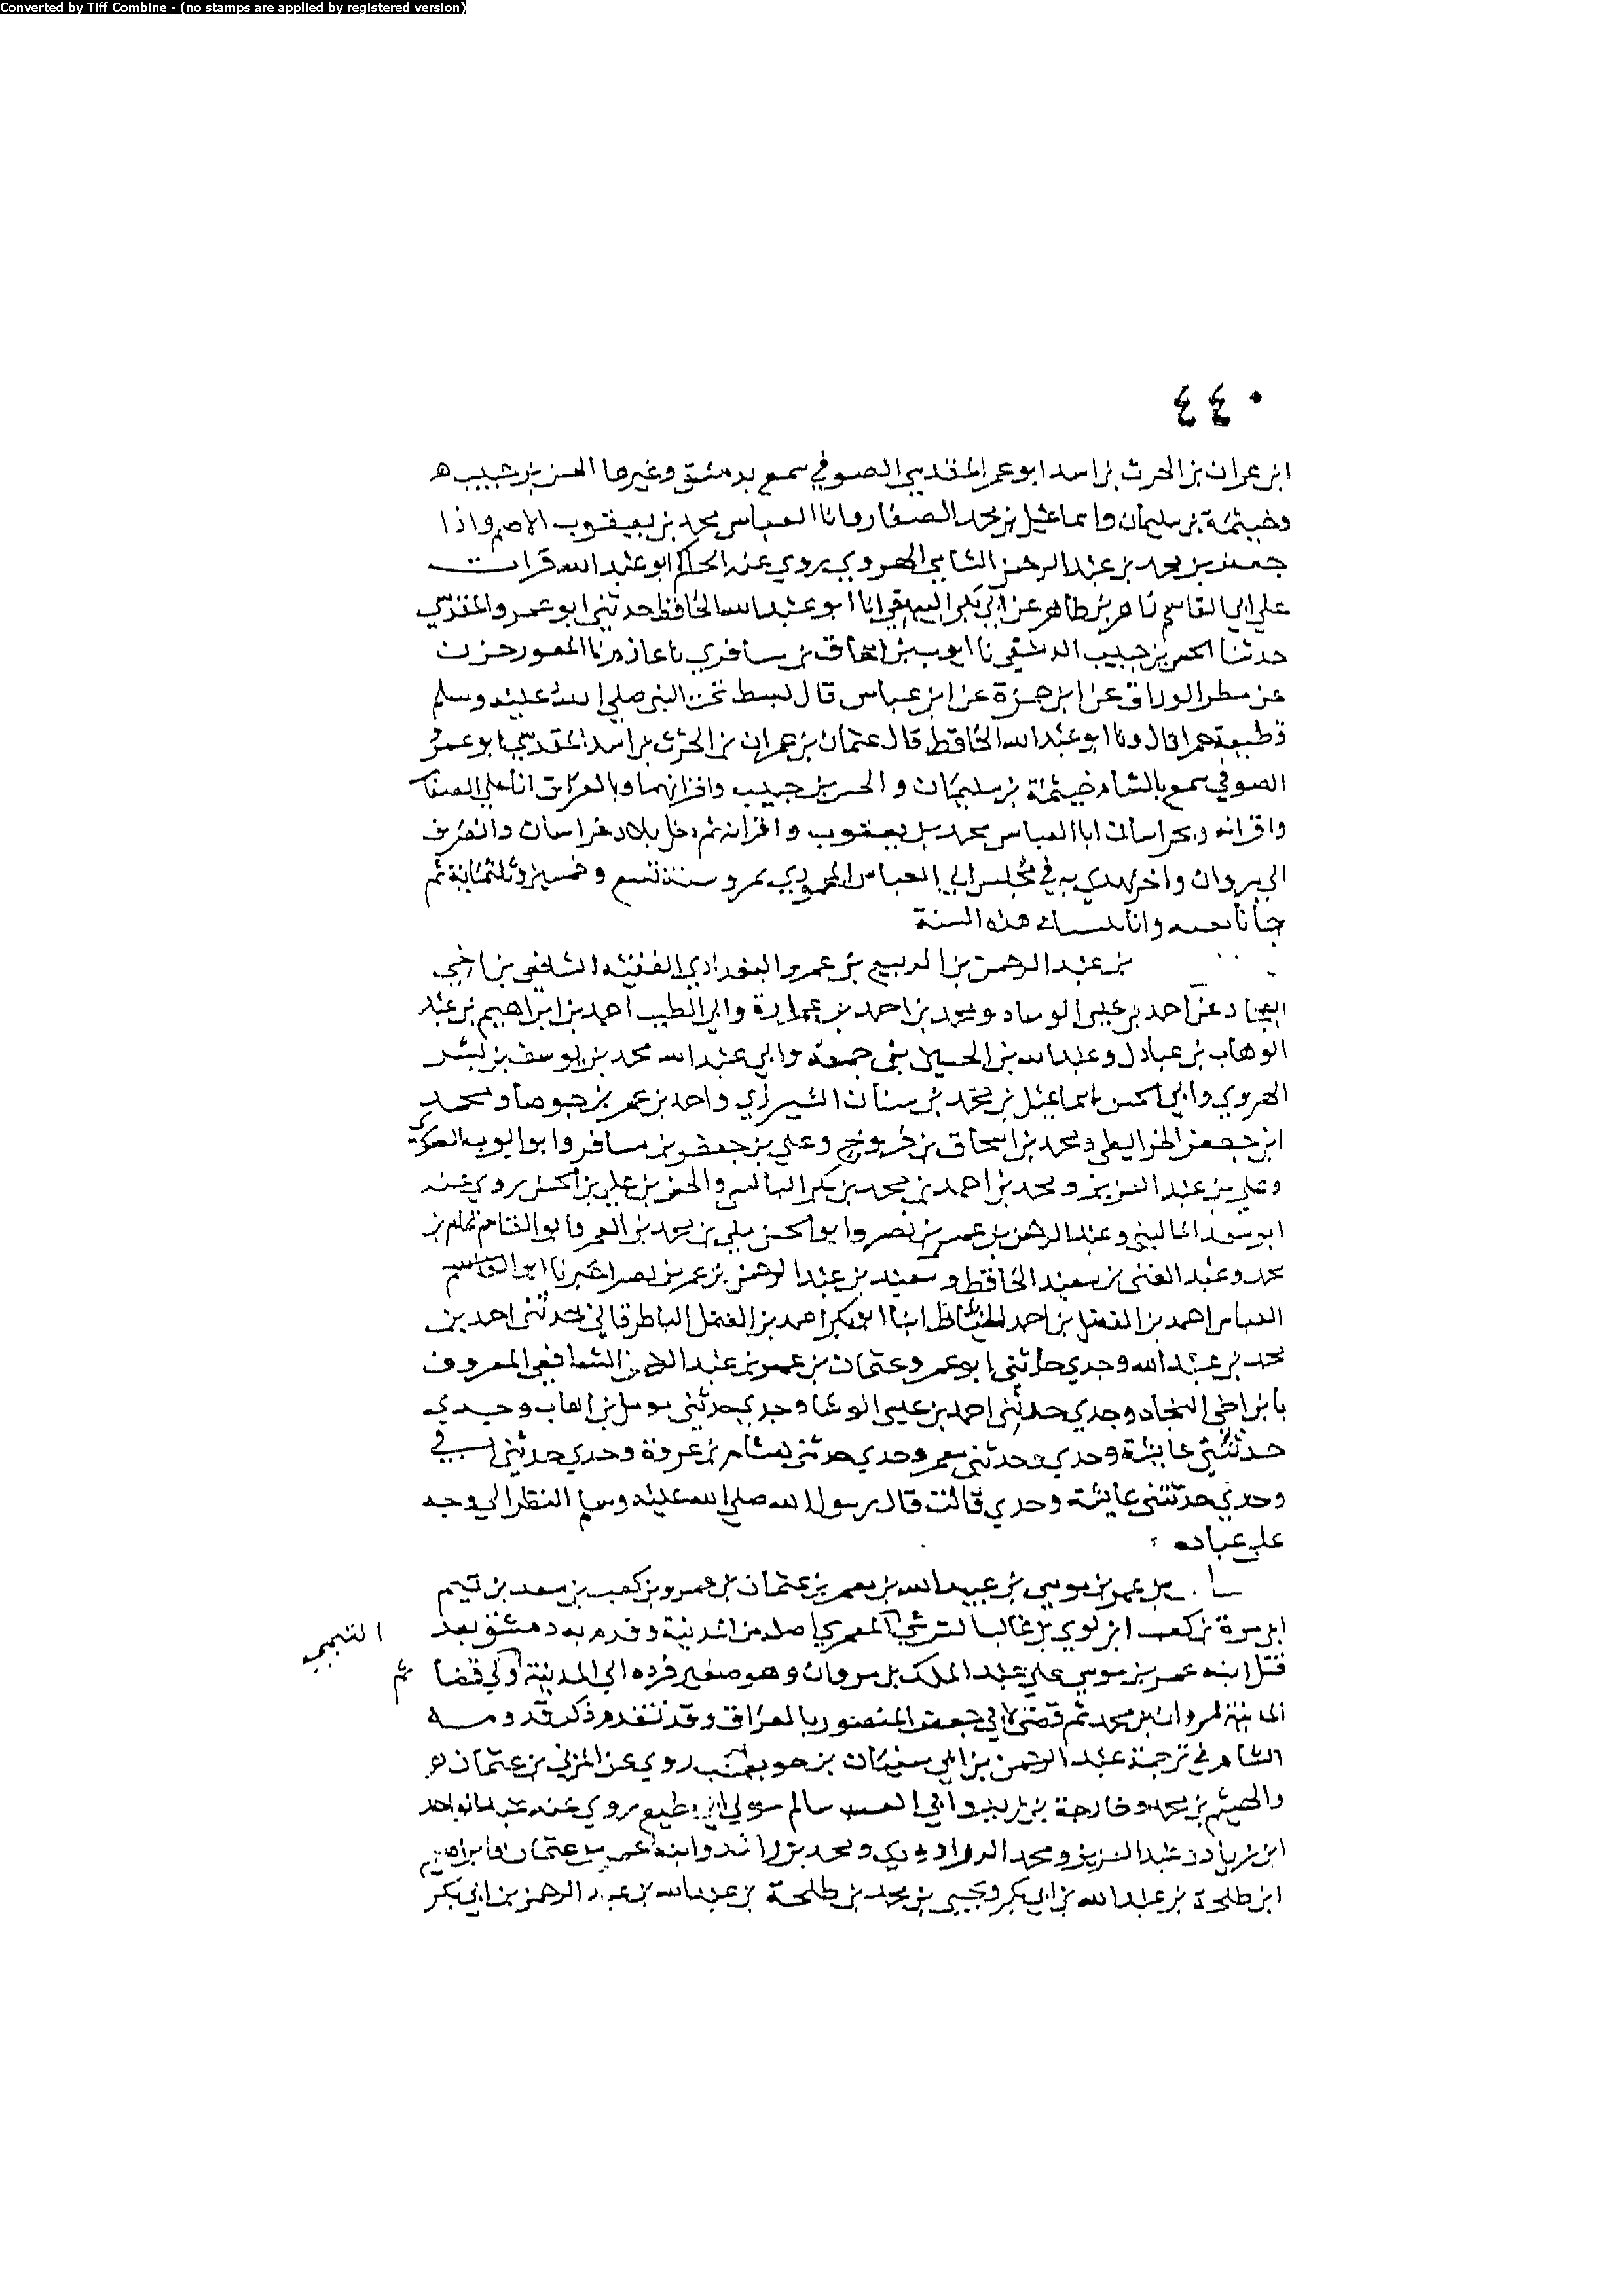 Converted by Tiff Combine - (no stamps are applied by registered version)
٤٤٠
ابن عمران بن الحرث بن اسد ابو عمر المقدسي الصوفي سمع بدمشق وغيرها الحسن بن حبيب
وخيثمة بن سليمان واسماعيل بن محمد الصفار وابا العباس محمد بن يعقوب الاصم واذا
جعفر بن محمد بن عبد الرحمن الشامي الهروي يروي عنه الحاكم ابو عبد الله قرات
علي ابي القاسم زاهر بن طاهر عن ابي بكر البيهقي انا ابو عبد الله الحافظ حدثني ابو عمرو المقدسي
حدثنا الحسن بن حبيب الدمشقي نا ايوب بن اسحاق بن سافري نا
عن مطر الوراق عن ابن حمزة عن ابن عباس قال بسط تحت النبي صلي الله عليه وسلم
قطيفة حمرا قال ونا ابو عبد الله الحافظ قال عثمان بن عمران بن الحرث بن اسد المقدسي ابو عمر
الصوفي سمع بالشام خيثمة بن سليمان والحسن بن حبيب واقرانهما وبالعراق ابا علي الصفار
واقرانه وبخراسان ابا العباس محمد بن يعقوب واقرانه ثم دخل بلاد خراسان وانصرف
الي مروان واخر عهدي به في مجلس ابي العباس المحمودي بمرو سنة تسع وخمسين وثلثماية ثم
جانا نعيه وانا هذه السنة
بن عبد الرحمن بن الربيع بن عمرو البغدادي الفقيه الشافعي بن اخي
النجاد عن احمد بن عيسى الوشاء ومحمد بن احمد بن عمارة وابي الطيب احمد بن ابراهيم بن عبد
الوهاب بن عبادل وعبد الله بن الحسين بن جمعة وابي عبد الله محمد بن يوسف بن بشر
الهروي وابي الحسن اسماعيل بن محمد بن سنان الشيرزي واحمد بن عمر بن جوصا ومحمد
ابن جعفر الخرايطي ومحمد بن اسحاق بن وعلي بن جعفر بن مسافر وابو ايوب
وعلي بن عبد العزيز ومحمد بن احمد بن محمد بن بكر البالسي والحسن بن علي بن الحسن روي عنه
ابو سعد الماليني وعبد الرحمن بن عمر بن نصر وابو الحسن علي بن محمد بن وابو القاسم تمام بن
محمد وعبد الغني بن سعيد الحافظ وسعيد بن عبد الرحمن بن عمر بن نصر اخبرنا ابو القاسم
العباس احمد بن الفضل بن احمد الخياط انبا ابو بكر احمد بن الفضل الباطرقاني حدثني احمد بن
محمد بن عبد الله وحدي حدثني ابو عمرو عثمان بن عمر بن عبد الرحمن الشافعي المعروف
بابن اخي النجاد وحدي حدثني احمد بن عيسى الوشا وحدي حدثني مومل بن اهاب وحدي
وحدي حدثني معمر وحدي حدثني هشام بن عروة وحدي حدثني ابي
وحدي حدثتني عايشة وحدي قالت قال رسول الله صلي الله عليه وسلم النظر الي وجه
علي عباده
بن عمر بن موسي بن عبيد الله بن معمر بن عثمان بن عمرو بن كعب بن سعد بن تيم
ابن مرة بن كعب ابن لوي بن غالب القرشي المعمري اصله من المدينة وقدم به دمشق بعد
التيمي
قتل ابنه عمر بن موسي علي عبد الملك بن مروان وهو صغير فرده الي المدينة ولي قضا
ثم
المدينة لمروان بن محمد ثم قضي لابي جعفر المنصور بالعراق وقد تقدم ذكر قدومه
الشام في ترجمة عبد الرحمن بن ابي سفيان بن حويطب روي عن الزهري بن عثمان
والهيثم بن محمد وخارجة بن يزيد وابي الغيث سالم مولي ابن مطيع روي عنه عبد الواحد
ابن زياد وعبد العزيز ومحمد الدراوردي ومحمد بن راشد وابنه عمر بن عثمان وابراهيم
ابن طلحة بن عبد الله بن ابي بكر ويحيى بن محمد بن طلحة بن عبد الله بن عبد الرحمن بن ابي بكر